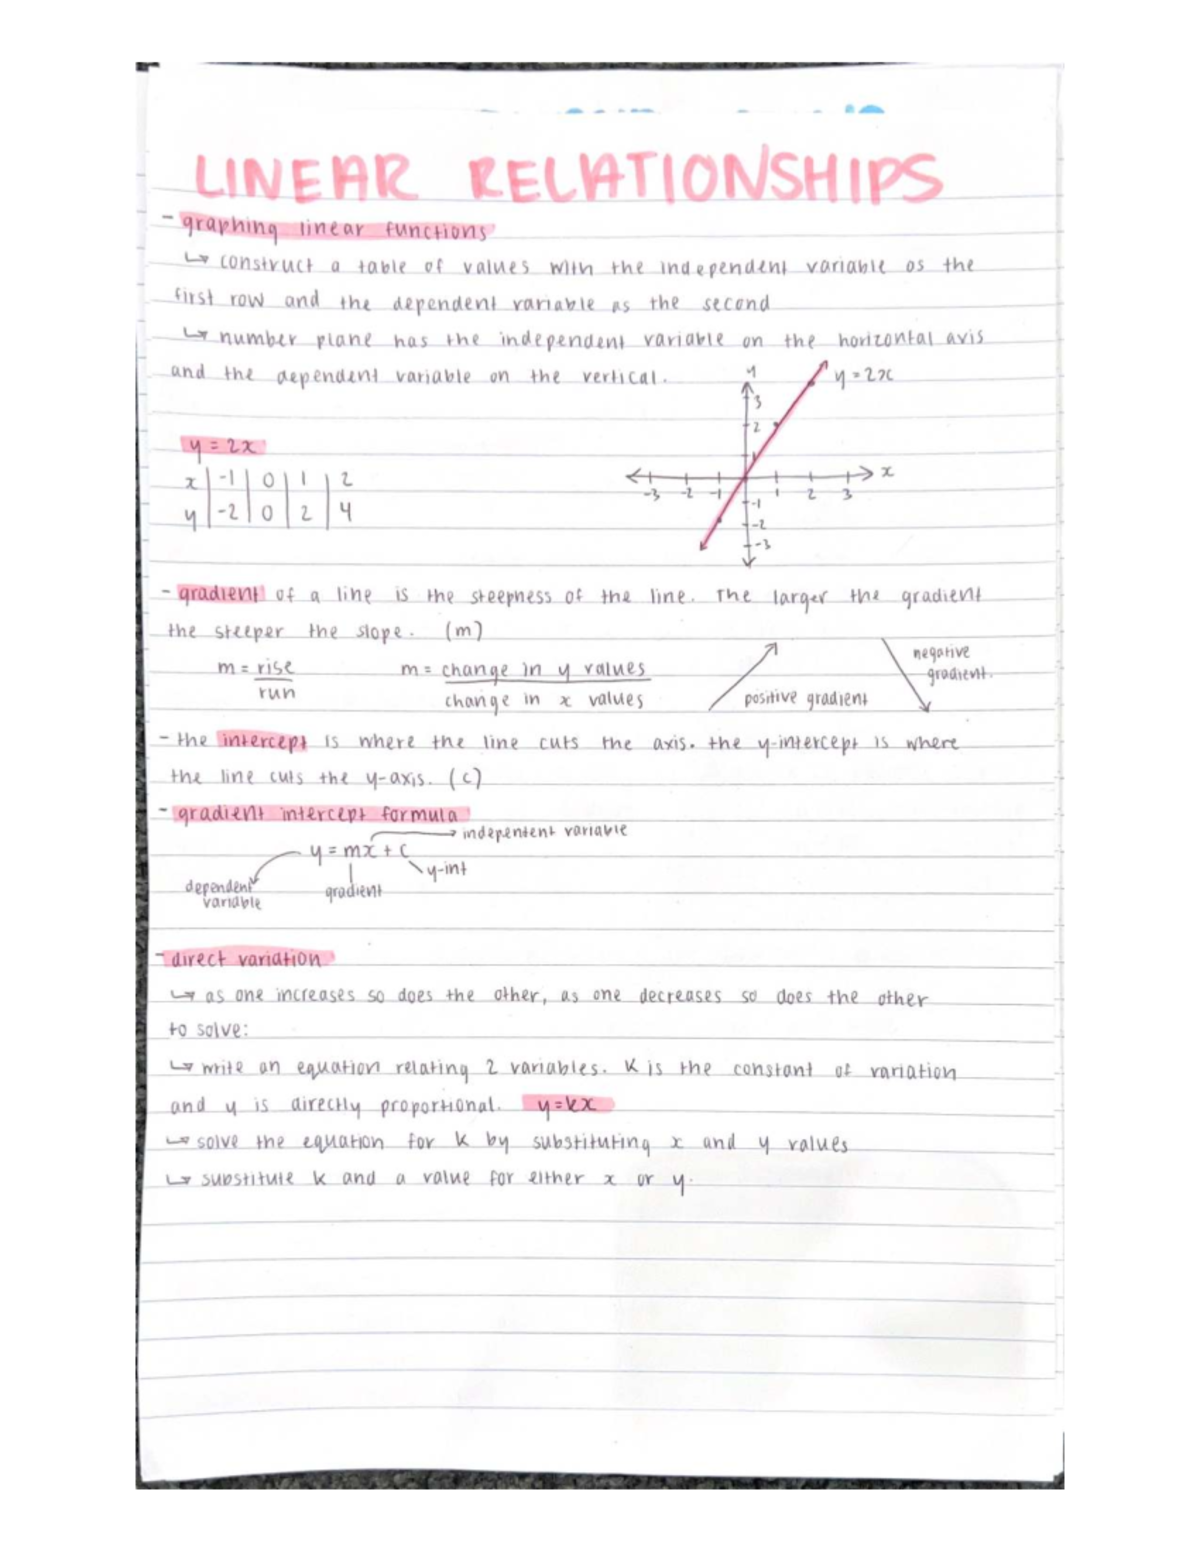 LINEAR RELATIONSHIPS
- graphing linear functions
↳ construct a table of values with the independent variable as the
first row and the dependent variable as the second
↳ number plane has the independent variable on the horizontal axis
and the dependent variable on the vertical.
y
y = 2x
3
2
1
x
-3 -2 -1 1 2 3
-1
-2
-3
y = 2x
x | -1 | 0 | 1 | 2
y | -2 | 0 | 2 | 4
- gradient of a line is the steepness of the line. The larger the gradient
the steeper the slope. (m)
m = rise
run
m = change in y values
change in x values
positive gradient
negative
gradient.
- the intercept is where the line cuts the axis. the y-intercept is where
the line cuts the y-axis. (c)
- gradient intercept formula
independent variable
y = mx + c
y-int
dependent
variable
gradient
- direct variation
↳ as one increases so does the other, as one decreases so does the other
to solve:
↳ write an equation relating 2 variables. K is the constant of variation
and y is directly proportional. y=kx
↳ solve the equation for K by substituting x and y values
↳ substitute k and a value for either x or y.